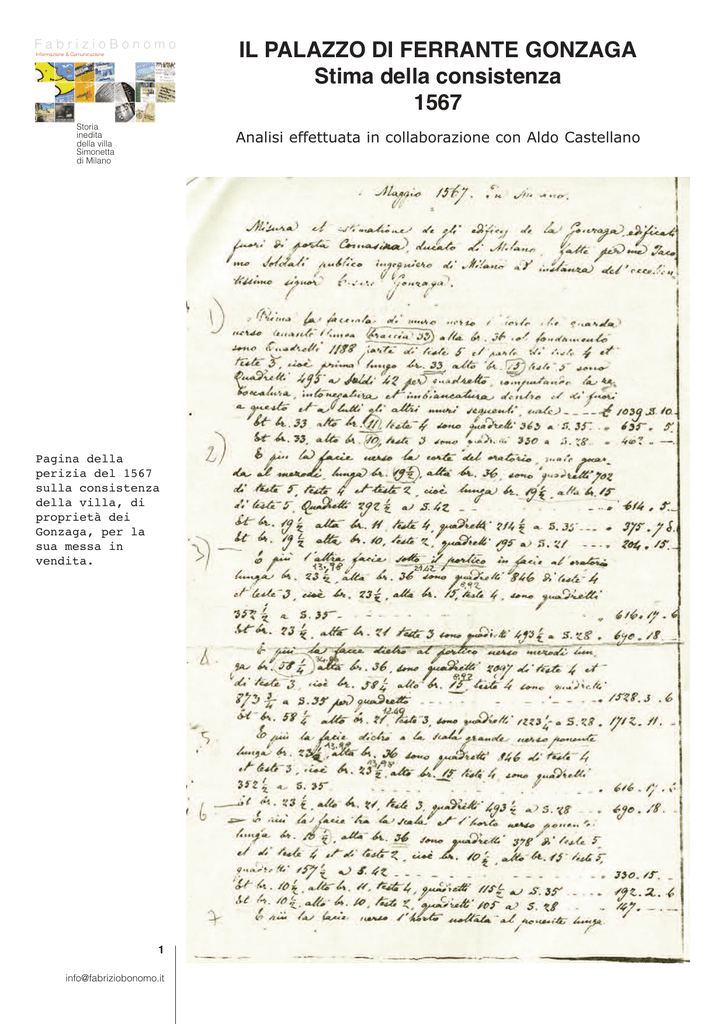 FabrizioBonomo
Informazione & Comunicazione
Storia
inedita
della villa
Simonetta
di Milano
IL PALAZZO DI FERRANTE GONZAGA
Stima della consistenza
1567
Analisi effettuata in collaborazione con Aldo Castellano
Pagina della
perizia del 1567
sulla consistenza
della villa, di
proprietà dei
Gonzaga, per la
sua messa in
vendita.
Maggio 1567. In Milano.
Misura et estimatione de gli edificy de la Gonzaga edificati
fuori di porta Comasina, ducato di Milano, fatte per me Jaco
mo Soldati publico ingegniero di Milano ad instanza del' eccellen
tissimo signor Cesare Gonzaga.
1) Prima la facciata di muro verso l'horto che guarda
verso levante lunga braccia 33 alta br. 36 col fondamento
sono Quadretti 1188 parte di teste 5 et parte di teste 4 et
teste 3, cioè prima lungo br. 33 alto br. 15 teste 5 sono
Quadretti 495 a Soldi 42 per quadretto, computando la re
boccatura, intonegatura et imbiancatura dentro et di fuori
a questo et a tutti gli altri muri seguenti, vale £ 1039.S.10
Et br. 33 alto br. 11 teste 4 sono quadretti 363 a S. 35 635. 5.
Et br. 33, alto br. 10, teste 3 sono quadretti 330 a S. 28 462
2) E più la facie verso la corte del oratorio, quale guar
da al merodi, lunga br. 19½, alta br. 36, sono quadretti 702
di teste 5, teste 4 et teste 2, cioè lunga br. 19½, alta br. 15
di teste 5, Quadretti 292½ a S. 42 614. 5.
Et br. 19½ alto br. 11, teste 4, quadretti 214½ a S. 35 375. 7.6.
Et br. 19½ alto br. 10, teste 2, quadretti 195 a S. 21 204. 15.
3) E più l'altra facie sotto il portico in facie al oratorio
13,98 21,42
lunga br. 23½, alta br. 36 sono quadretti 846 di teste 4
8,92
et teste 3, cioè br. 23½, alta br. 15, teste 4, sono quadretti
352½ a S. 35 616. 17. 6
Et br. 23½, alto br. 21 teste 3 sono quadretti 493½ a S. 28 690. 18.
4 E più la facie dietro al portico verso merodi lun
ga br. 58¼, alta br. 36, sono quadretti 2097 di teste 4 et
8,92
di teste 3, cioè br. 58¼ alto br. 15, teste 4 sono quadretti
873¾ a S. 35 per quadretto 1528. 3. 6
12,49
Et br. 58¼ alto br. 21, teste 3, sono quadretti 1223¼ a S. 28 1712. 11.
5 E più la facie dietro a la scala grande verso ponente
13,98
lunga br. 23½, alta br. 36 sono quadretti 846 di teste 4
13,98
et teste 3, cioè br. 23½, alto br. 15 teste 4, sono quadretti
352½ a S. 35 616. 17.
Et br. 23½, alto br. 21, teste 3, quadretti 493½ a S. 28 690. 18.
6 E più la facie tra la scala et l'horto verso ponente
lunga br. 10½, alta br. 36 sono quadretti 378 di teste 5,
et di teste 4 et di teste 2, cioè br. 10½, alto br. 15 teste 5,
quadretti 157½ a S. 42 330. 15.
Et br. 10½, alto br. 11, teste 4, quadretti 115½ a S. 35 192. 2. 6
Et br. 10½, alto br. 10, teste 2, quadretti 105 a S. 28 147.
7 E più la facie verso l'horto voltata al ponente lunga
1
info@fabriziobonomo.it